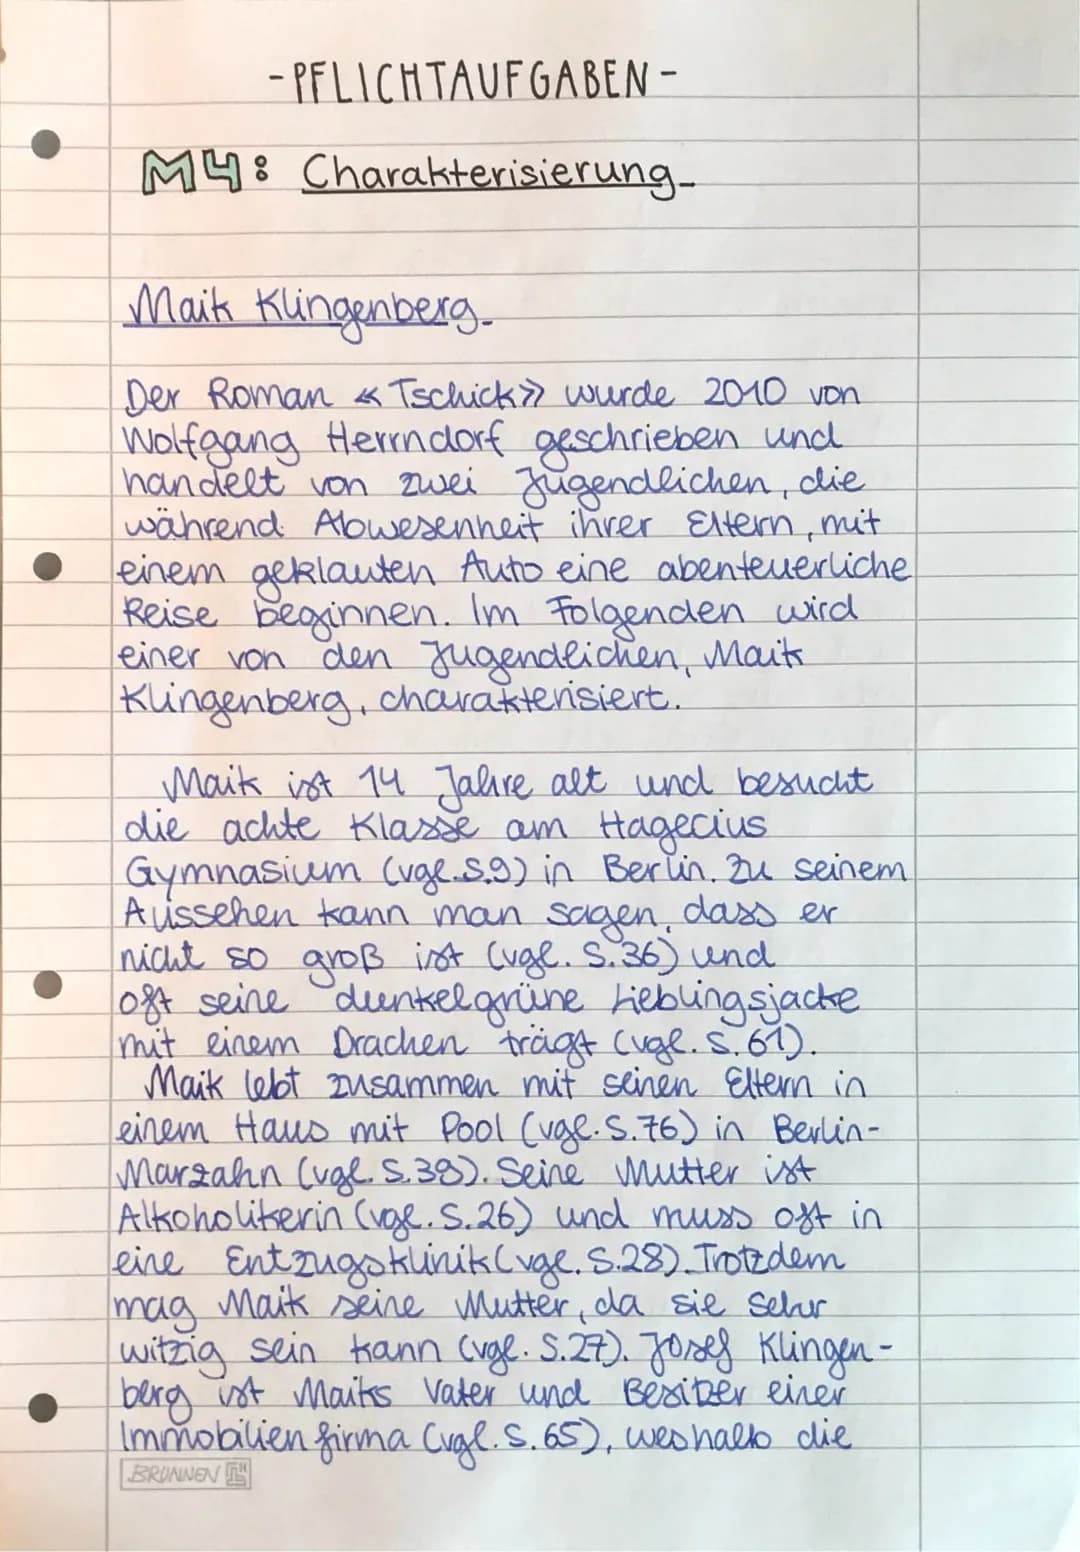 -PFLICHTAUFGABEN-
M4: Charakterisierung
Maik Klingenberg
Der Roman «Tschick» wurde 2010 von
Wolfgang Herrndorf geschrieben und
handelt von zwei Jugendlichen, die
während Abwesenheit ihrer Eltern, mit
einem geklauten Auto eine abenteuerliche
Reise beginnen. Im Folgenden wird
einer von den Jugendlichen, Maik
Klingenberg, charakterisiert.
Maik ist 14 Jahre alt und besucht
die achte Klasse am Hagecius
Gymnasium (vgl. S.9) in Berlin. Zu seinem
Aussehen kann man sagen, dass er
nicht so groß ist (vgl. S.36) und
oft seine dunkelgrüne Lieblingsjacke
mit einem Drachen trägt (vgl. S. 61).
Maik lebt zusammen mit seinen Eltern in
einem Haus mit Pool (vgl. S.76) in Berlin-
Marzahn (vgl. S.38). Seine Mutter ist
Alkoholikerin (vgl. S.26) und muss oft in
eine Entzugsklinik (vgl. S.28). Trotzdem
mag Maik seine Mutter, da sie sehr
witzig sein kann (vgl. S.27). Josef Klingen-
berg ist Maiks Vater und Besitzer einer
Immobilienfirma (vgl. S. 65), weshalb die
BRUNNEN